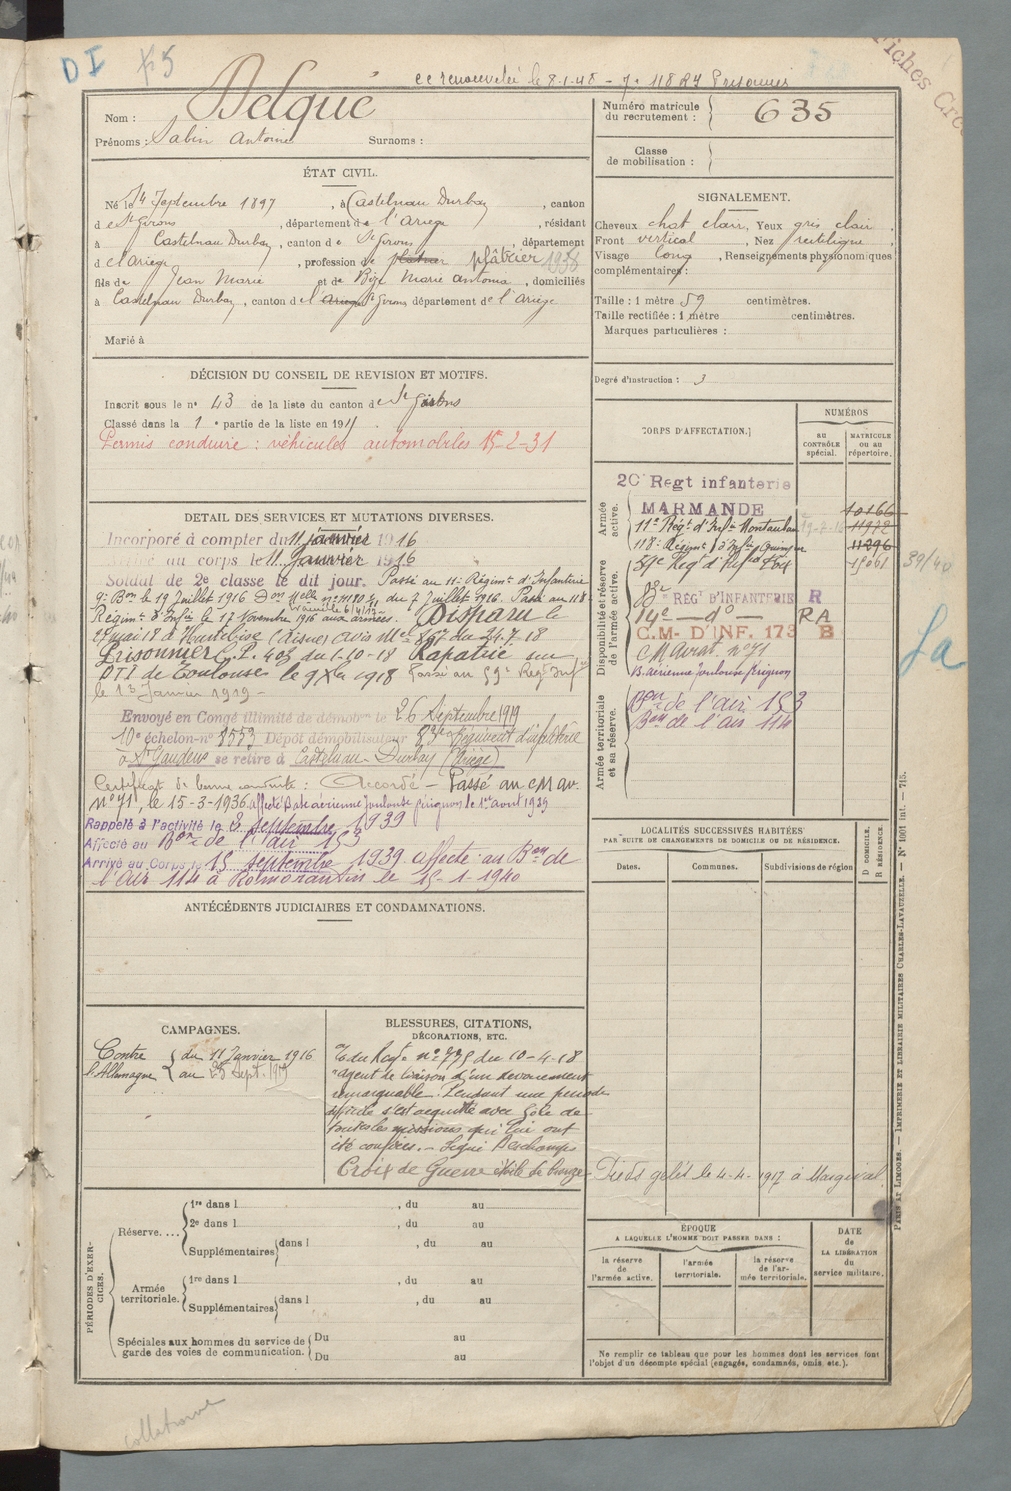 DI
Fiches
cc renouvelée le 8-1-48
Nom : Delqué
Prénoms : Sabin Antoine Surnoms :
Numéro matricule
du recrutement : 635
Classe
de mobilisation :
ÉTAT CIVIL.
Né le 4 Septembre 1897, à Castelnau Durban, canton
de St Girons, département de l'Ariège, résidant
à Castelnau Durban, canton de St Girons, département
de l'Ariège, profession de plâtrier plâtrier 1938
fils de Jean Marie et de Marie Antonia, domiciliés
à Castelnau Durban, canton de l'Ariège St Girons département de l'Ariège
Marié à
SIGNALEMENT.
Cheveux chat clair, Yeux gris clair.
Front vertical, Nez rectiligne,
Visage long, Renseignements physionomiques
complémentaires :
Taille : 1 mètre 59 centimètres.
Taille rectifiée : 1 mètre centimètres.
Marques particulières :
Degré d'instruction : 3
DÉCISION DU CONSEIL DE REVISION ET MOTIFS.
Inscrit sous le n° 43 de la liste du canton de St Girons
Classé dans la 1 e partie de la liste en 191
Permis conduire : véhicules automobiles 15-2-31
DÉTAIL DES SERVICES ET MUTATIONS DIVERSES.
Incorporé à compter du 11 janvier 1916
au corps le 11 janvier 1916
Soldat de 2e classe le dit jour. Passé au 11e Régimt d'Infanterie
9e Bon le 19 Juillet 1916 Don du 7 Juillet 1916. Passé au 118e
Régimt d'Infie le 17 Novembre 1916 aux armées. Disparu le
mai 18 à Hurtebise (Aisne) avis Mel 867 du 24-7-18
Prisonnier C.P. 403 du 1-10-18 Rapatrié sur
DTI de Toulouse le 9 Xbre 1918 Passé au 59e Régt Infie
le 1 Janvier 1919 -
Envoyé en Congé illimité de démobon le 26 Septembre 1919
10e échelon n° 8573 Dépôt démobilisateur 83e Régiment d'infanterie
à St Gaudens se retire à Castelnau Durban (Ariège)
Certificat de bonne conduite : Accordé - Passé au CM av.
n° 71, le 15-3-1936 affecté Base aérienne Toulouse Pérignon le 1er août 1939
Rappelé à l'activité le 3 septembre 1939
Affecté au Bon de l'air 153
Arrivé au Corps le 15 septembre 1939 affecté au Bon de
l'Air 114 à Romorantin le 15-1-1940
CORPS D'AFFECTATION.
NUMÉROS
au
CONTRÔLE
spécial.
MATRICULE
ou au
répertoire.
Armée
active.
20e Regt infanterie
MARMANDE 10166
11e Régt d'Infie Montauban 11972
118e Régimt d'Infie Quimper 11296
59e Regt d'Infie Foix 15061
39/40
Disponibilité et réserve
de l'armée active.
RÉG D'INFANTERIE R
14e - do - RA
C.M- D'INF. 173 B
CM Aviat. n°71
B. Aérienne Toulouse Pérignon
La
Armée territoriale
et sa réserve.
Bon de l'air 153
Bon de l'air 114
LOCALITÉS SUCCESSIVES HABITÉES
PAR SUITE DE CHANGEMENTS DE DOMICILE OU DE RÉSIDENCE.
Dates.
Communes.
Subdivisions de région
D DOMICILE.
R RÉSIDENCE.
ANTÉCÉDENTS JUDICIAIRES ET CONDAMNATIONS.
CAMPAGNES.
Contre
l'Allemagne
du 11 Janvier 1916
au 25 Sept. 1919
BLESSURES, CITATIONS,
DÉCORATIONS, ETC.
O du Regt n° 735 du 10-4-18
"agent de liaison d'un dévouement
remarquable. Pendant une période
difficile s'est acquitté avec zèle de
toutes les missions qui lui ont
été confiées. - Signé Deschamps
Croix de Guerre étoile de bronze
Pieds gelés le 4-4-1917 à Margival
PÉRIODES D'EXERCICES.
Réserve....
1re dans l , du au
2e dans l , du au
Supplémentaires dans l , du au
Armée
territoriale.
1re dans l , du au
Supplémentaires dans l , du au
Spéciales aux hommes du service de
garde des voies de communication.
Du au
Du au
ÉPOQUE
A LAQUELLE L'HOMME DOIT PASSER DANS :
la réserve
de l'armée active.
l'armée
territoriale.
la réserve
de l'ar-
mée territoriale.
DATE
de
LA LIBÉRATION
du
service militaire.
Ne remplir ce tableau que pour les hommes dont les services font
l'objet d'un décompte spécial (engagés, condamnés, omis, etc.).
PARIS ET LIMOGES. — IMPRIMERIE ET LIBRAIRIE MILITAIRES CHARLES-LAVAUZELLE. — N° 1001 int. — 715.